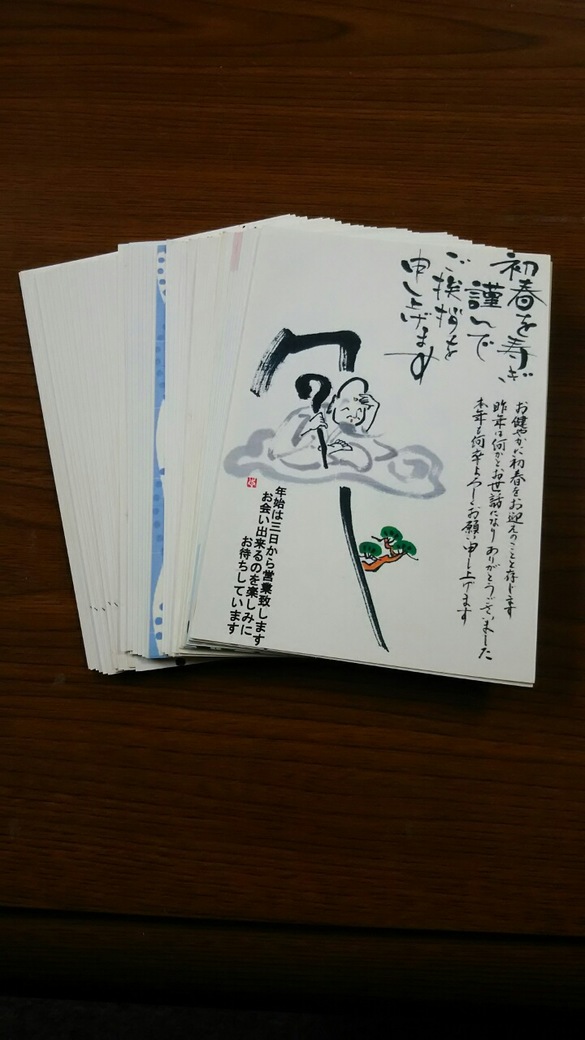 初春を寿ぎ
謹んで
ご挨拶を
申し上げます
お健やかに初春をお迎えのことと存じます
昨年は何かとお世話になりありがとうございました
本年も何卒よろしくお願い申し上げます
年始は三日から営業致します
お会い出来るのを楽しみに
お待ちしています